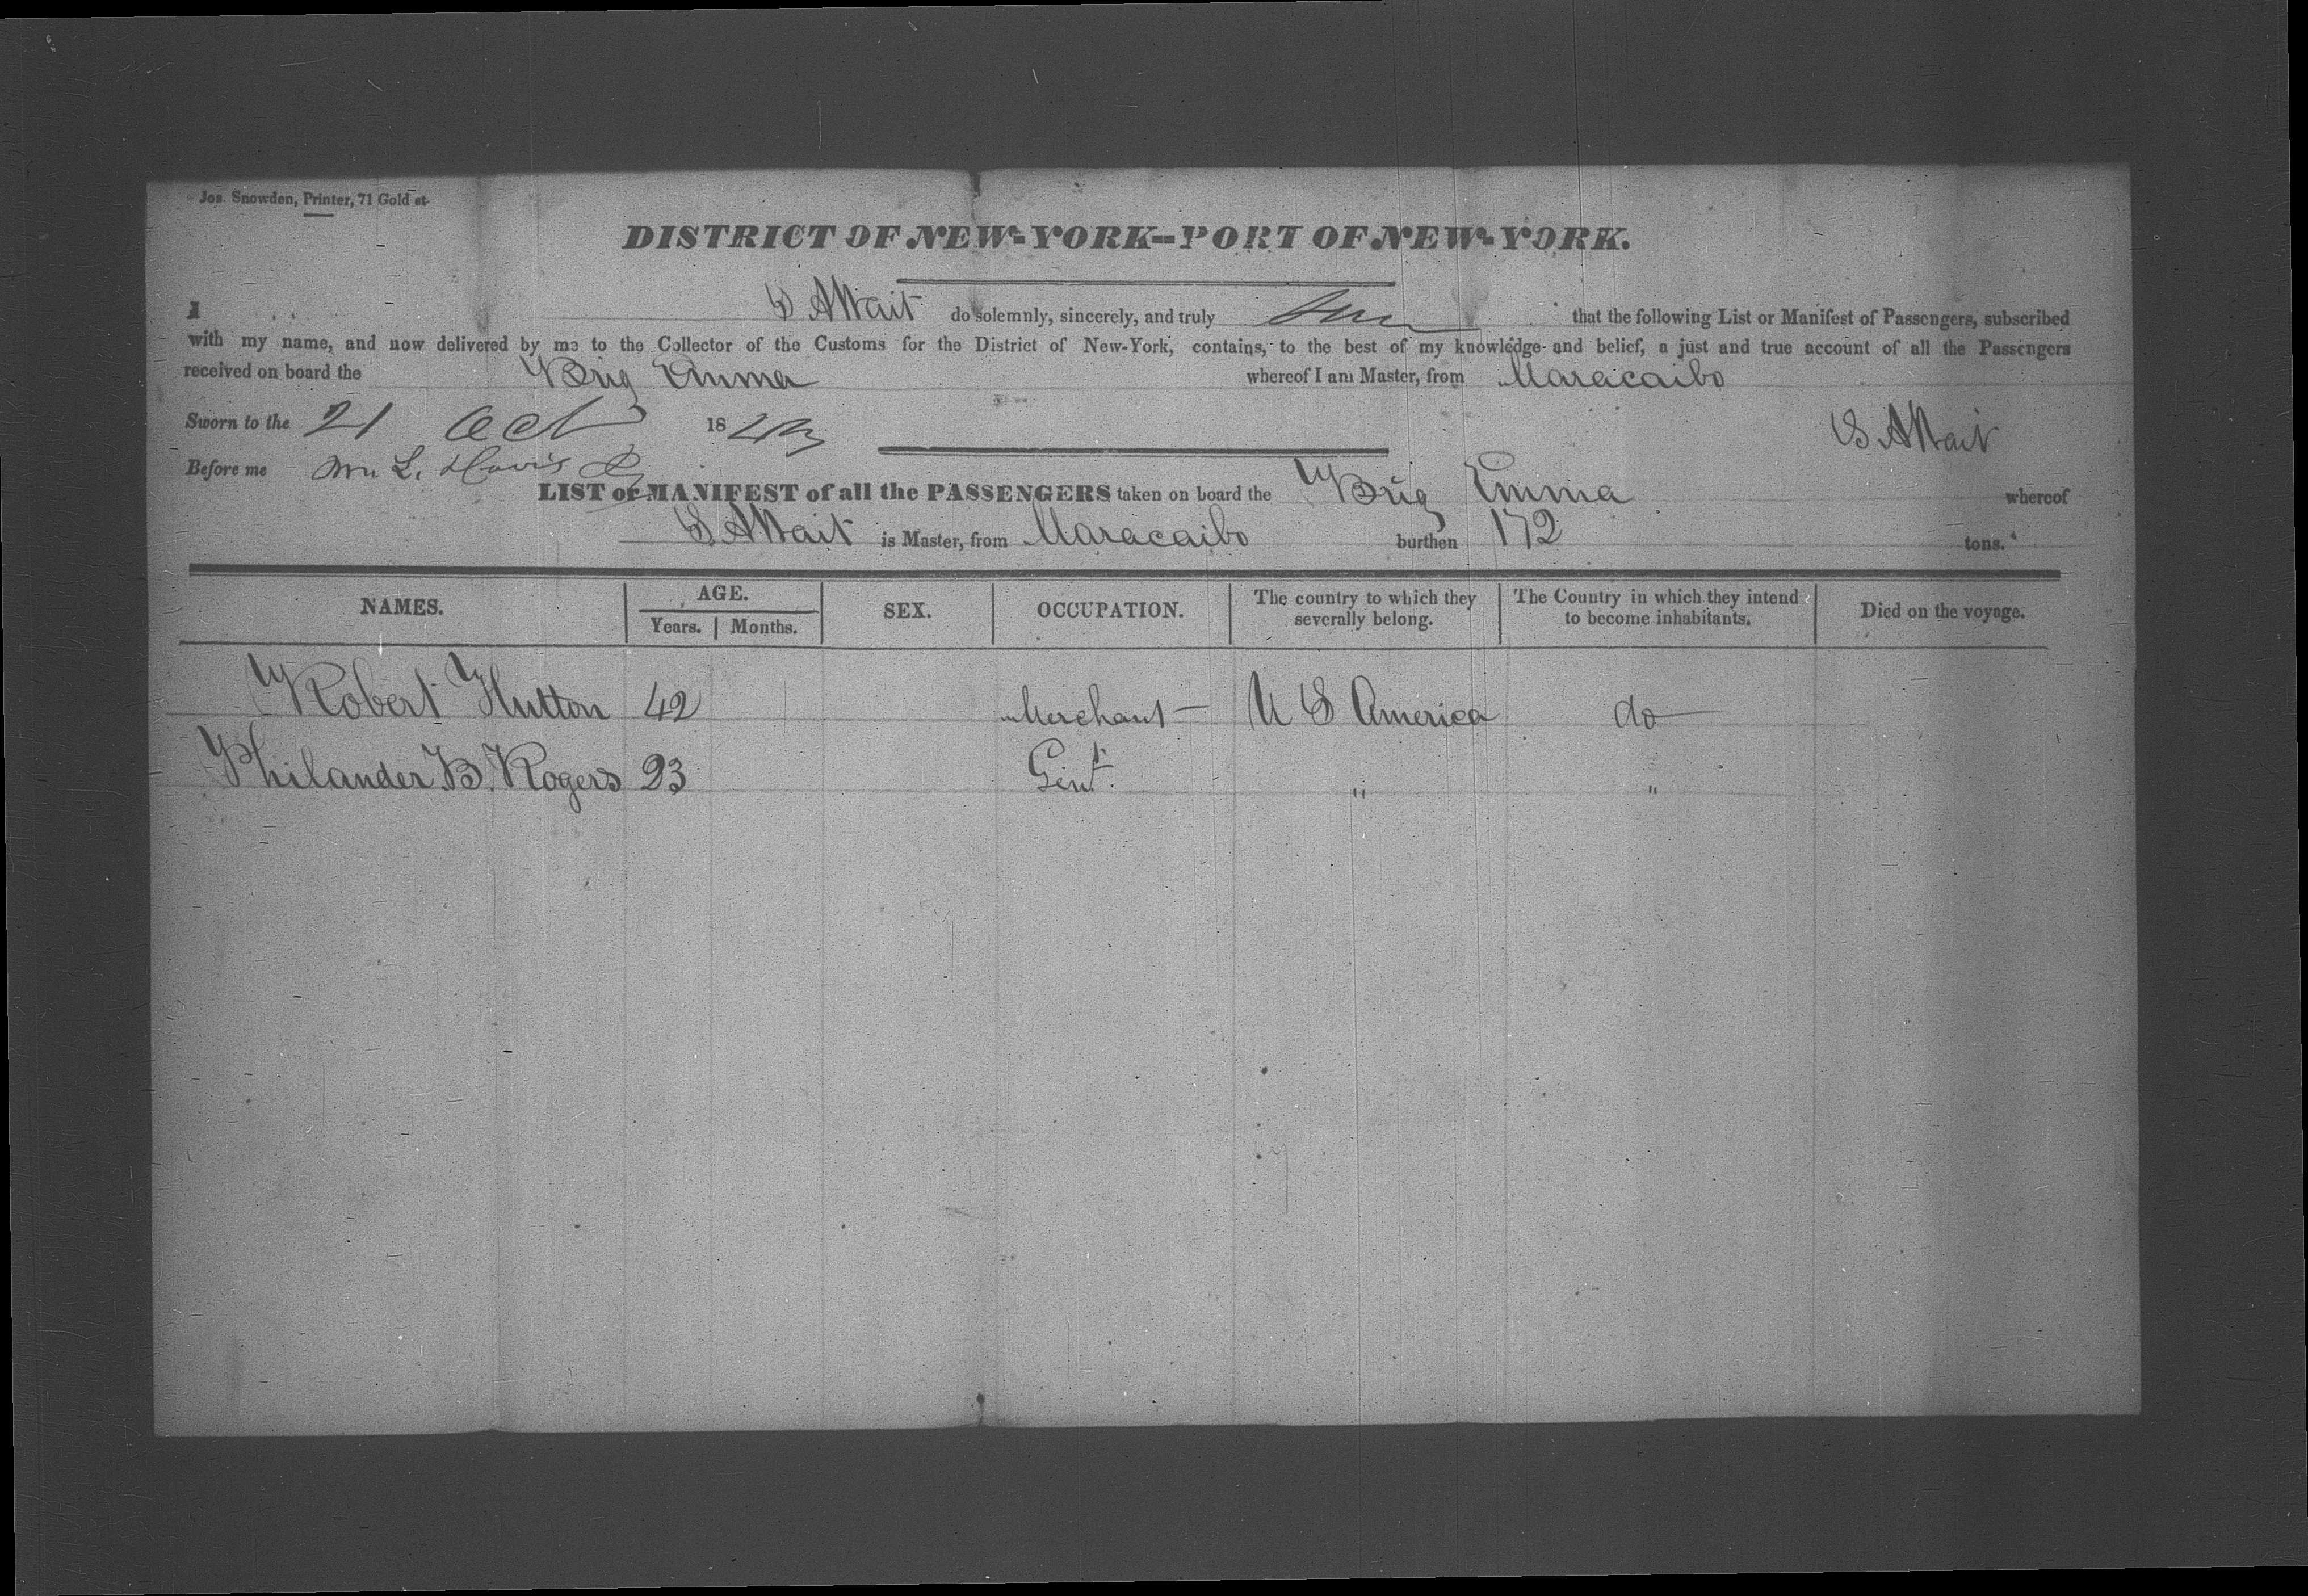 Jos. Snowden, Printer, 71 Gold st.
DISTRICT OF NEW-YORK--PORT OF NEW-YORK.
I S A Wait do solemnly, sincerely, and truly that the following List or Manifest of Passengers, subscribed
with my name, and now delivered by me to the Collector of the Customs for the District of New-York, contains, to the best of my knowledge and belief, a just and true account of all the Passengers
received on board the Brig Emma whereof I am Master, from Maracaibo
Sworn to the 21 Oct 18 S A Wait
Before me Wm L. Davis
LIST or MANIFEST of all the PASSENGERS taken on board the Brig Emma whereof
S. A Wait is Master, from Maracaibo burthen 172 tons.
NAMES. AGE. Years. Months. SEX. OCCUPATION. The country to which they severally belong. The Country in which they intend to become inhabitants. Died on the voyage.
Robert Hutton 42 Merchant — U S America do
Philander B. Rogers 23 Gent. " "